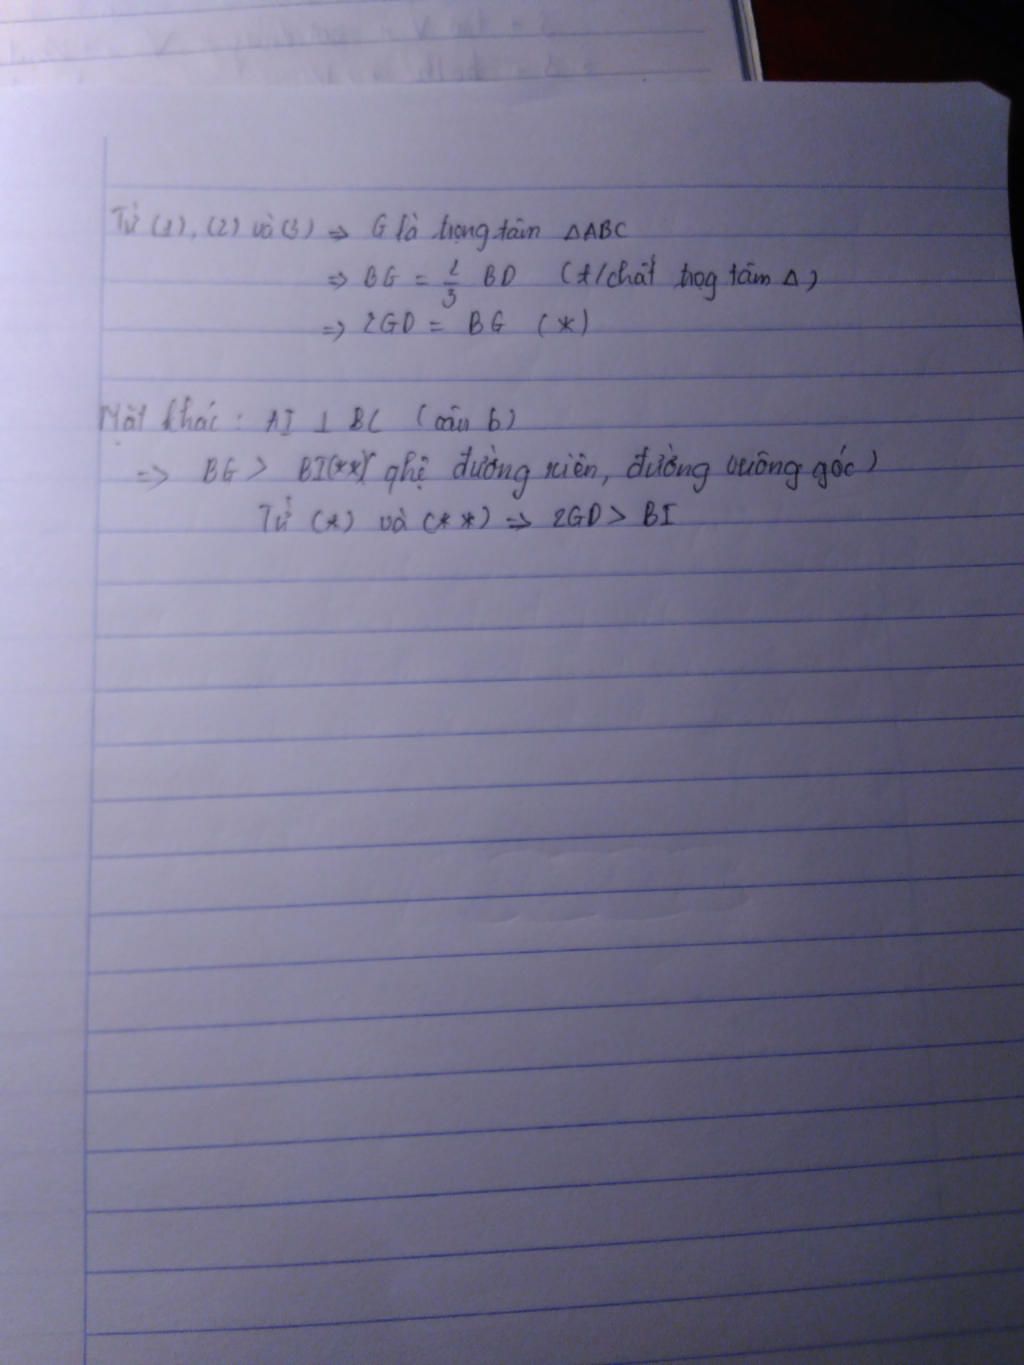 Từ (1), (2) và (3) => G là trọng tâm ΔABC
=> BG = 2/3 BD (t/chất trọg tâm Δ)
=> 2GD = BG (*)
Mặt khác: AI ⊥ BC (câu b)
=> BG > BI(**) qhệ đường xiên, đường vuông góc)
Từ (*) và (**) => 2GD > BI